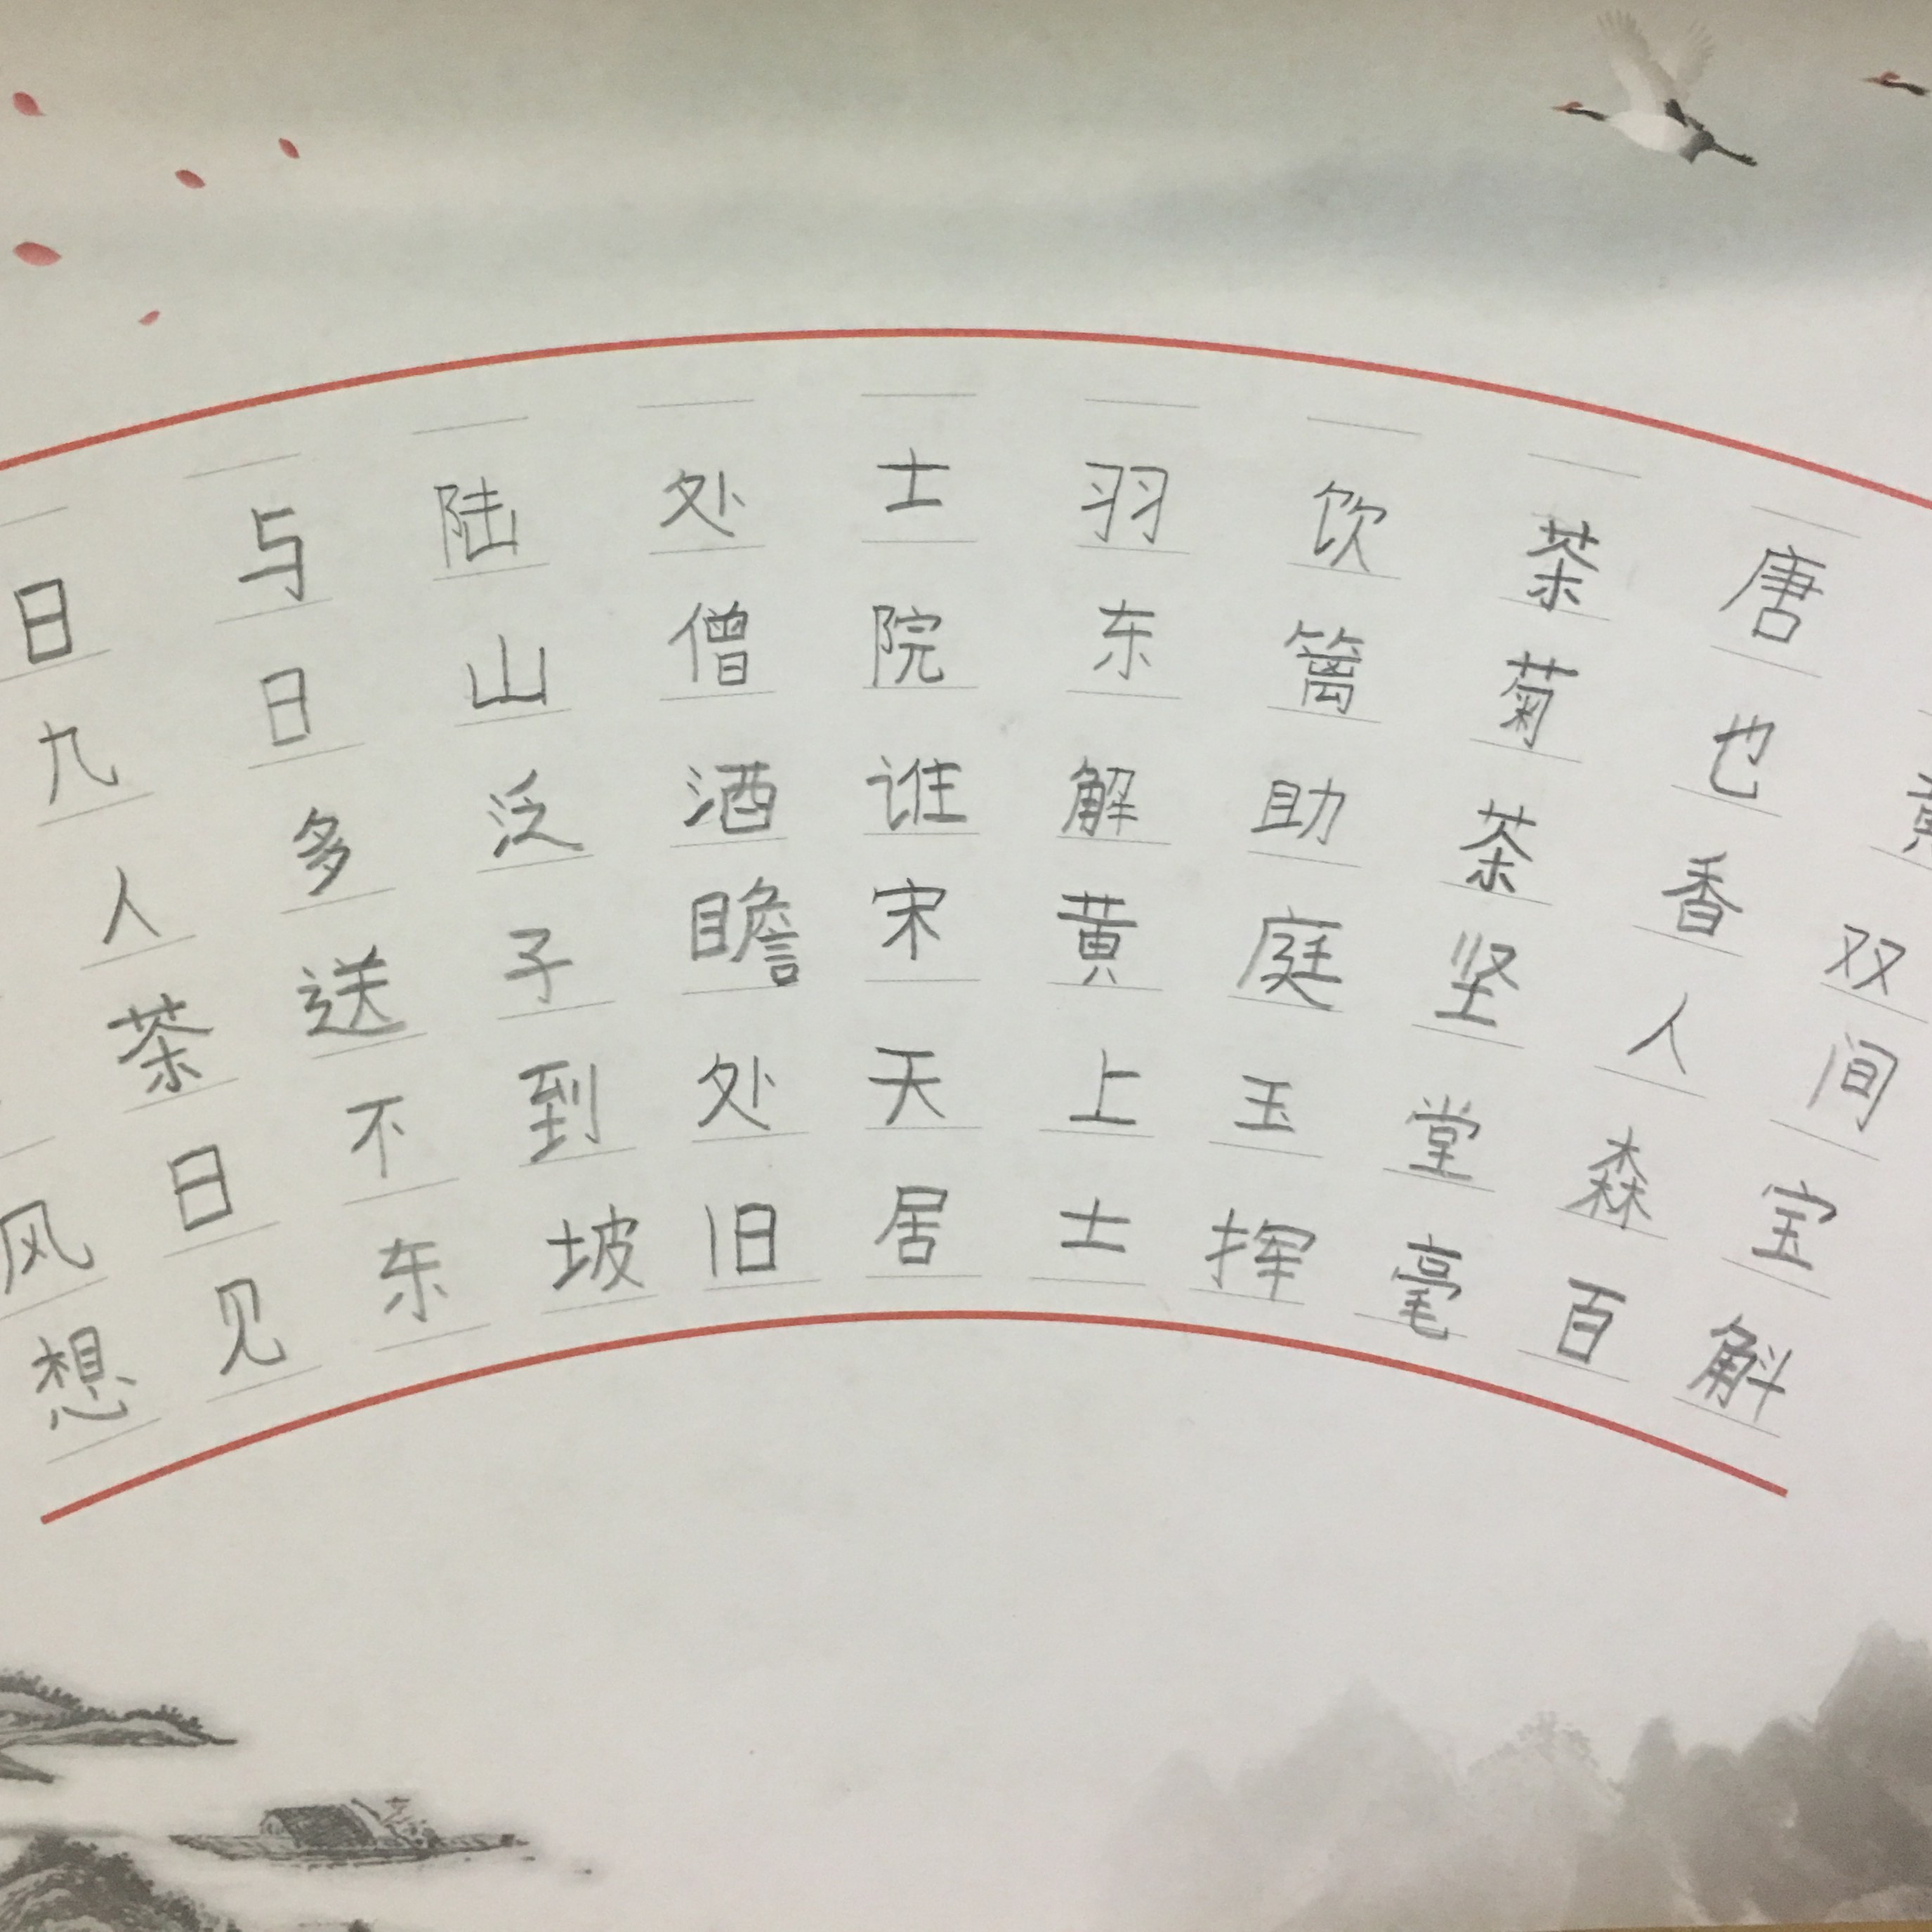 日与陆处士羽饮茶唐
九日山僧院东篱菊也黄
人多泛酒谁解助茶香双
茶送子瞻宋黄庭坚人间
风日不到处天上玉堂森宝
想见东坡旧居士挥毫百斛